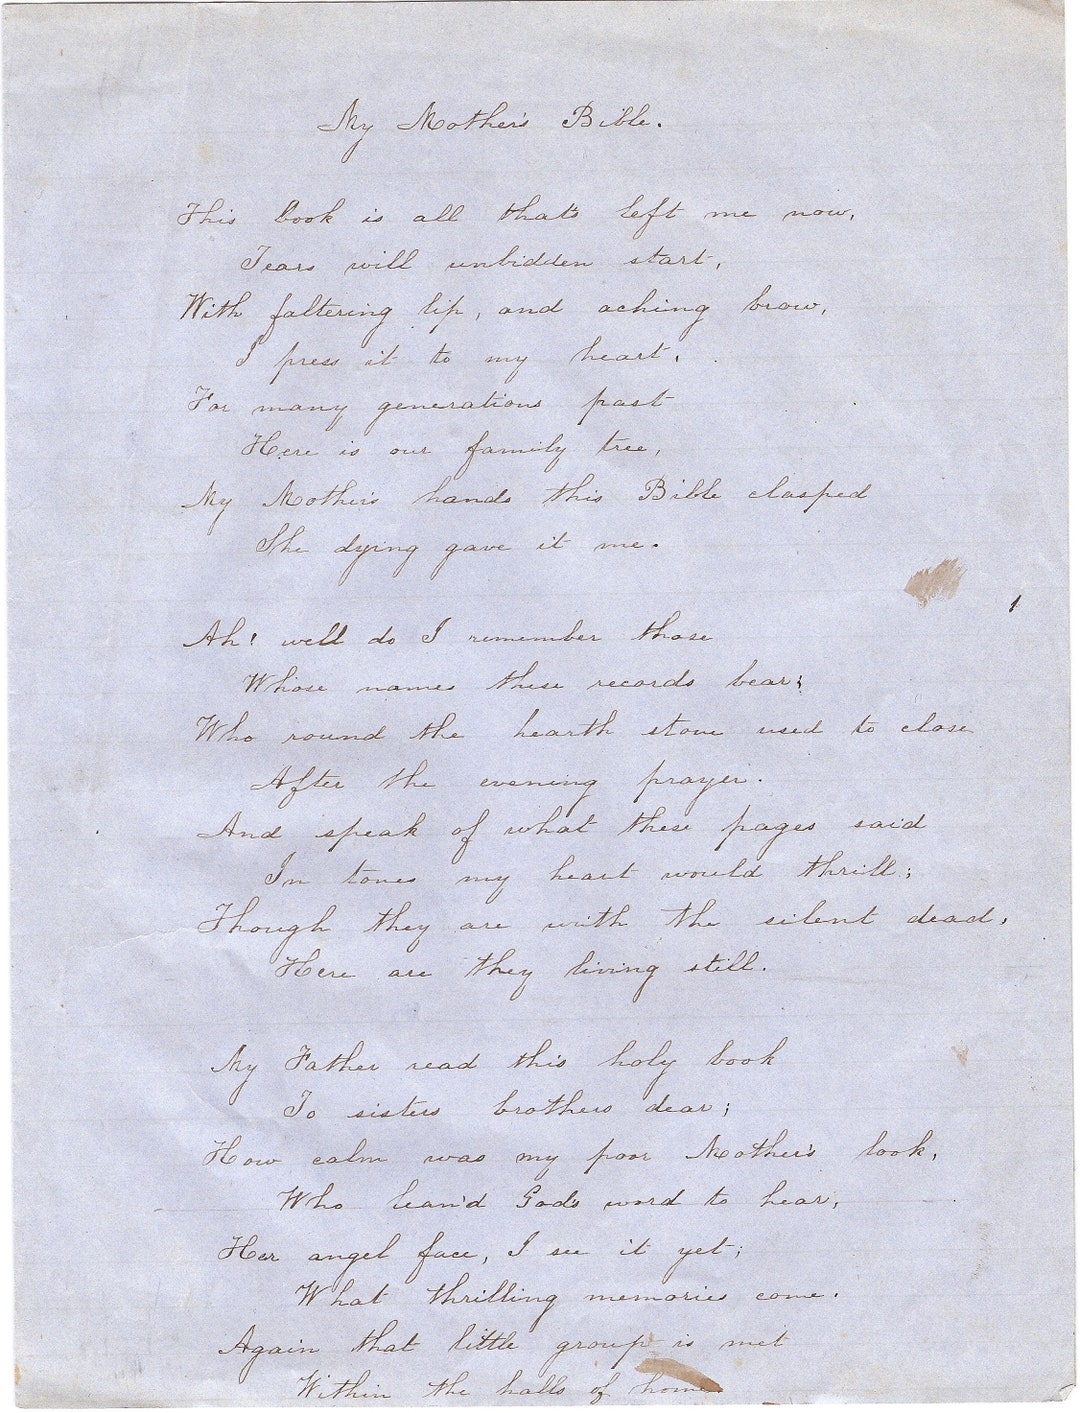 My Mother's Bible.
This book is all that's left me now,
Tears will unbidden start,
With faltering lip, and aching brow,
I press it to my heart.
For many generations past
Here is our family tree,
My Mother's hands this Bible clasped
She dying gave it me.
Ah! well do I remember those
Whose names these records bear;
Who round the hearth stone used to close
After the evening prayer.
And speak of what these pages said
In tones my heart would thrill;
Though they are with the silent dead,
Here are they living still.
My Father read this holy book
To sisters brothers dear;
How calm was my poor Mother's look,
Who lean'd God's word to hear,
Her angel face, I see it yet;
What thrilling memories come.
Again that little group is met
Within the halls of home.